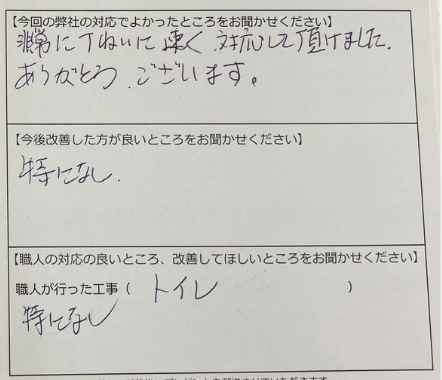 【今回の弊社の対応でよかったところをお聞かせください】
非常に丁ねいに速く対応して頂けました.
ありがとうございます。
【今後改善した方が良いところをお聞かせください】
特になし.
【職人の対応の良いところ、改善してほしいところをお聞かせください】
職人が行った工事（ トイレ ）
特になし